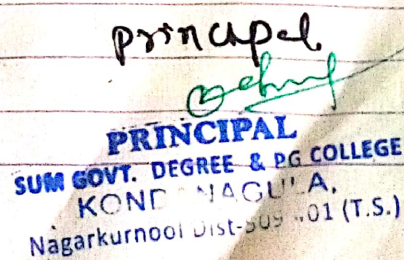 principal
PRINCIPAL
SUM GOVT. DEGREE & PG COLLEGE
KOND NAGULA,
Nagarkurnool Dist-509 401 (T.S.)